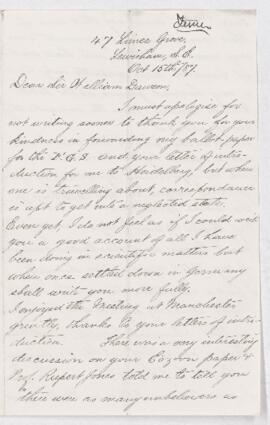 47 Limes Grove,
Lewisham, S.E.
Oct 15th/87.
Dear Sir William Dawson,
I must apologise for
not writing sooner to thank you for your
kindness in forwarding my ballot paper
for the F.G.S. and your letter of intro-
duction for me to Heidelberg, but when
one is travelling about, correspondance
is apt to get into a neglected state.
Even yet, I do not feel as if I could write
you a good account of all I have
been doing in scientific matters but
when once settled down in Germany
shall write you more fully.
I enjoyed the Meeting at Manchester
greatly, thanks to your letters of intro-
duction. There was a very interesting
discussion on your Eozoon paper &
Prof. Rupert Jones told me to tell you
there were as many unbelievers as